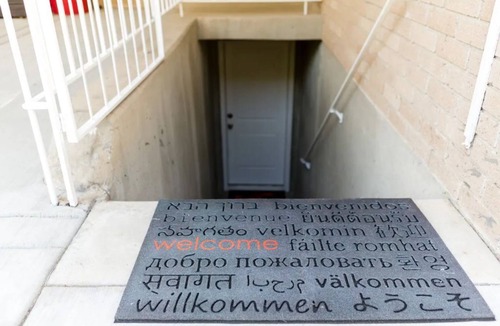 ברוך הבא bienvenidos
bienvenue ยินดีต้อนรับ
velkomin 歡迎
welcome fáilte romhat
добро пожаловать 환영
स्वागत välkommen
willkommen ようこそ